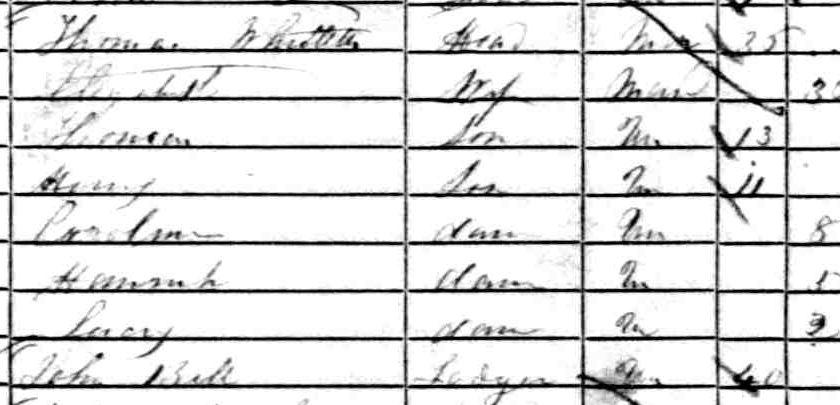 Thomas Whittle Head Mar 35
Elizabeth Wif Mar
Thomas Son Un 13
Henry Son Un 11
Caroline dau Un 8
Hannah dau Un 5
Lucy dau Un 3
John Bell Lodger Un 40